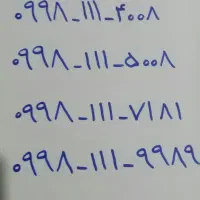 ۰۹۹۸_۱۱۱_۴۰۰۸
۰۹۹۸_۱۱۱_۵۰۰۸
۰۹۹۸_۱۱۱_۷۱۸۱
۰۹۹۸_۱۱۱_۹۹۸۹